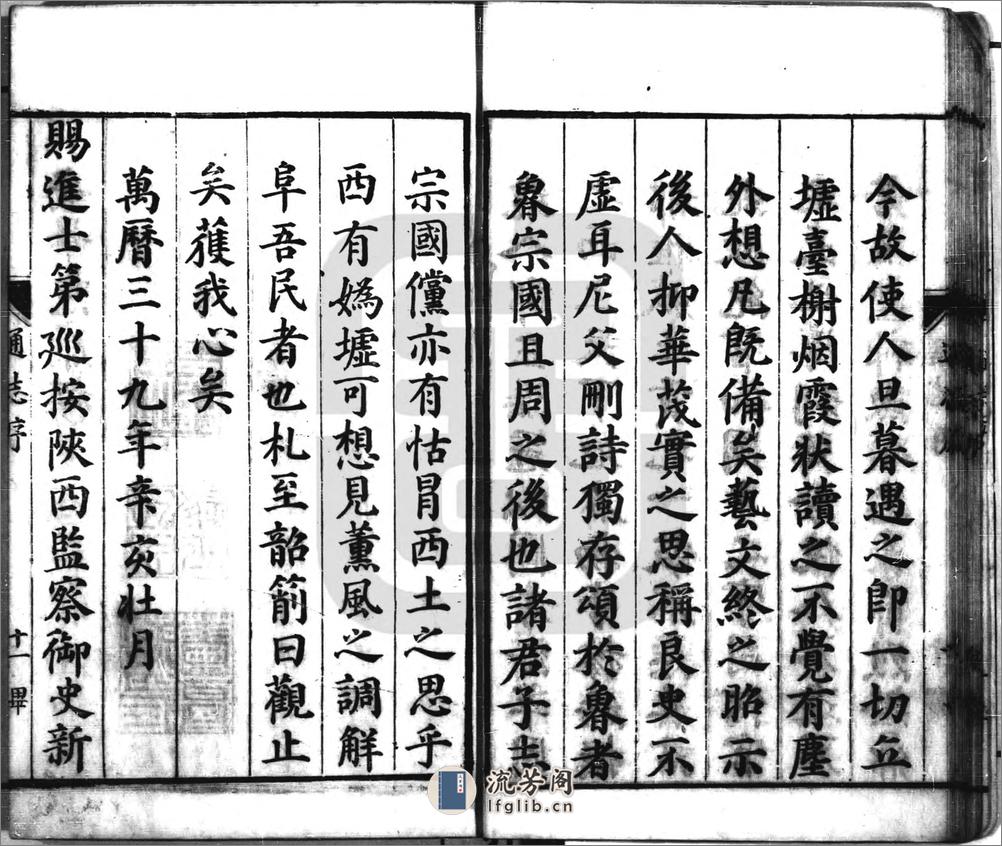 今故使人旦暮遇之即一切丘
墟臺榭烟霞狀讀之不覺有塵
外想凡既備矣藝文終之昭示
後人抑華茂實之思稱良史不
虛耳尼父刪詩獨存頌於魯者
魯宗國且周之後也諸君子志
宗國儻亦有怙冒西土之思乎
西有媯墟可想見薰風之調解
阜吾民者也札至韶箾曰觀止
矣蒦我心矣
萬曆三十九年辛亥壯月
賜進士第巡按陝西監察御史新
通志序
十一畢
流芳阁
lfglib.cn